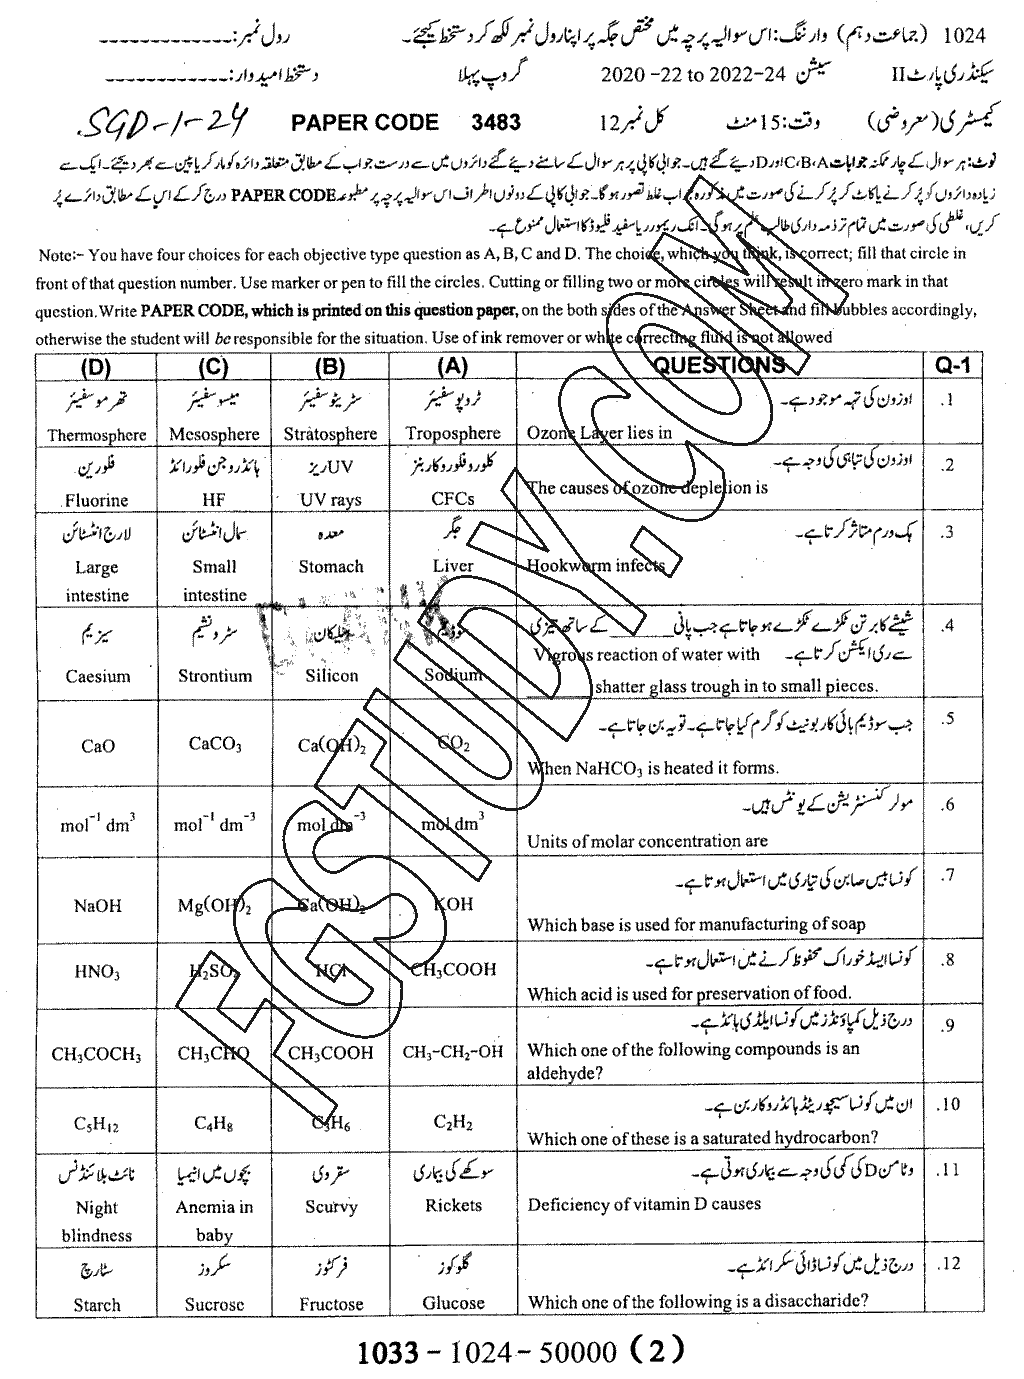 1024 (جماعت دہم) وارننگ: اس سوالیہ پرچہ میں مختص جگہ پر اپنا رول نمبر لکھ کر دستخط کیجئے۔ رول نمبر: -------------
سیکنڈری پارٹ II سیشن 2020 -22 to 2022-24 گروپ پہلا دستخط امیدوار: ------------
کیمسٹری (معروضی) وقت: 15 منٹ کل نمبر 12 PAPER CODE 3483 SGD-1-24
نوٹ: ہر سوال کے چار ممکنہ جوابات C، B، A اور D دیئے گئے ہیں۔ جوابی کاپی پر ہر سوال کے سامنے دیئے گئے دائروں میں سے درست جواب کے مطابق متعلقہ دائرہ کو مارکر یا پین سے بھر دیجئے۔ ایک سے
زیادہ دائروں کو پُر کرنے یا کاٹ کر پُر کرنے کی صورت میں مذکورہ جواب غلط تصور ہوگا۔ جوابی کاپی کے دونوں اطراف اس سوالیہ پرچہ پر مطبوعہ PAPER CODE درج کر کے اس کے مطابق دائرے پُر
کریں، غلطی کی صورت میں تمام تر ذمہ داری طالب علم پر ہوگی۔ انک ریموور یا سفید فلیوڈ کا استعمال ممنوع ہے۔
Note:- You have four choices for each objective type question as A, B, C and D. The choice, which you think, is correct; fill that circle in
front of that question number. Use marker or pen to fill the circles. Cutting or filling two or more circles will result in zero mark in that
question. Write PAPER CODE, which is printed on this question paper, on the both sides of the Answer Sheet and fill bubbles accordingly,
otherwise the student will be responsible for the situation. Use of ink remover or white correcting fluid is not allowed
(D) (C) (B) (A) QUESTIONS Q-1
تھرموسفیئر میسوسفیئر سٹریٹوسفیئر ٹروپوسفیئر اوزون کی تہہ موجود ہے۔ .1
Thermosphere Mesosphere Stratosphere Troposphere Ozone Layer lies in
فلورین ہائڈروجن فلورائڈ UV ریز کلوروفلوروکاربنز اوزون کی تباہی کی وجہ ہے۔ .2
Fluorine HF UV rays CFCs The causes of ozone depletion is
لارج انٹسٹائن سمال انٹسٹائن معدہ جگر ہک ورم متاثر کرتا ہے۔ .3
Large Small Stomach Liver Hookworm infects
intestine intestine
سیزیم سٹرونشیم سلیکان سوڈیم شیشے کا برتن ٹکڑے ٹکڑے ہو جاتا ہے جب پانی ______ کے ساتھ تیزی .4
سے ری ایکشن کرتا ہے۔ Vigrous reaction of water with
Caesium Strontium Silicon Sodium ______ shatter glass trough in to small pieces.
جب سوڈیم ہائی کاربونیٹ کو گرم کیا جاتا ہے۔ تو یہ بن جاتا ہے۔ .5
CaO CaCO3 Ca(OH)2 CO2 When NaHCO3 is heated it forms.
مولر کنسنٹریشن کے یونٹس ہیں۔ .6
mol⁻¹ dm³ mol⁻¹ dm⁻³ mol dm⁻³ mol dm³ Units of molar concentration are
کونسا بیس صابن کی تیاری میں استعمال ہوتا ہے۔ .7
NaOH Mg(OH)2 Ca(OH)2 KOH Which base is used for manufacturing of soap
کونسا ایسڈ خوراک محفوظ کرنے میں استعمال ہوتا ہے۔ .8
HNO3 H2SO4 HCl CH3COOH Which acid is used for preservation of food.
درج ذیل کمپاؤنڈز میں کونسا ایلڈی ہائڈ ہے۔ .9
CH3COCH3 CH3CHO CH3COOH CH3-CH2-OH Which one of the following compounds is an
aldehyde?
ان میں کونسا سیچوریٹڈ ہائڈروکاربن ہے۔ .10
C5H12 C4H8 C3H6 C2H2 Which one of these is a saturated hydrocarbon?
نائٹ بلائنڈنس بچوں میں انیمیا سقروی سوکھے کی بیماری وٹامن D کی کمی کی وجہ سے بیماری ہوتی ہے۔ .11
Night Anemia in Scurvy Rickets Deficiency of vitamin D causes
blindness baby
سٹارچ سکروز فرکٹوز گلوکوز درج ذیل میں کونسا ڈائی سکرائڈ ہے۔ .12
Starch Sucrose Fructose Glucose Which one of the following is a disaccharide?
1033 - 1024 - 50000 (2)
FGSTUDY.COM